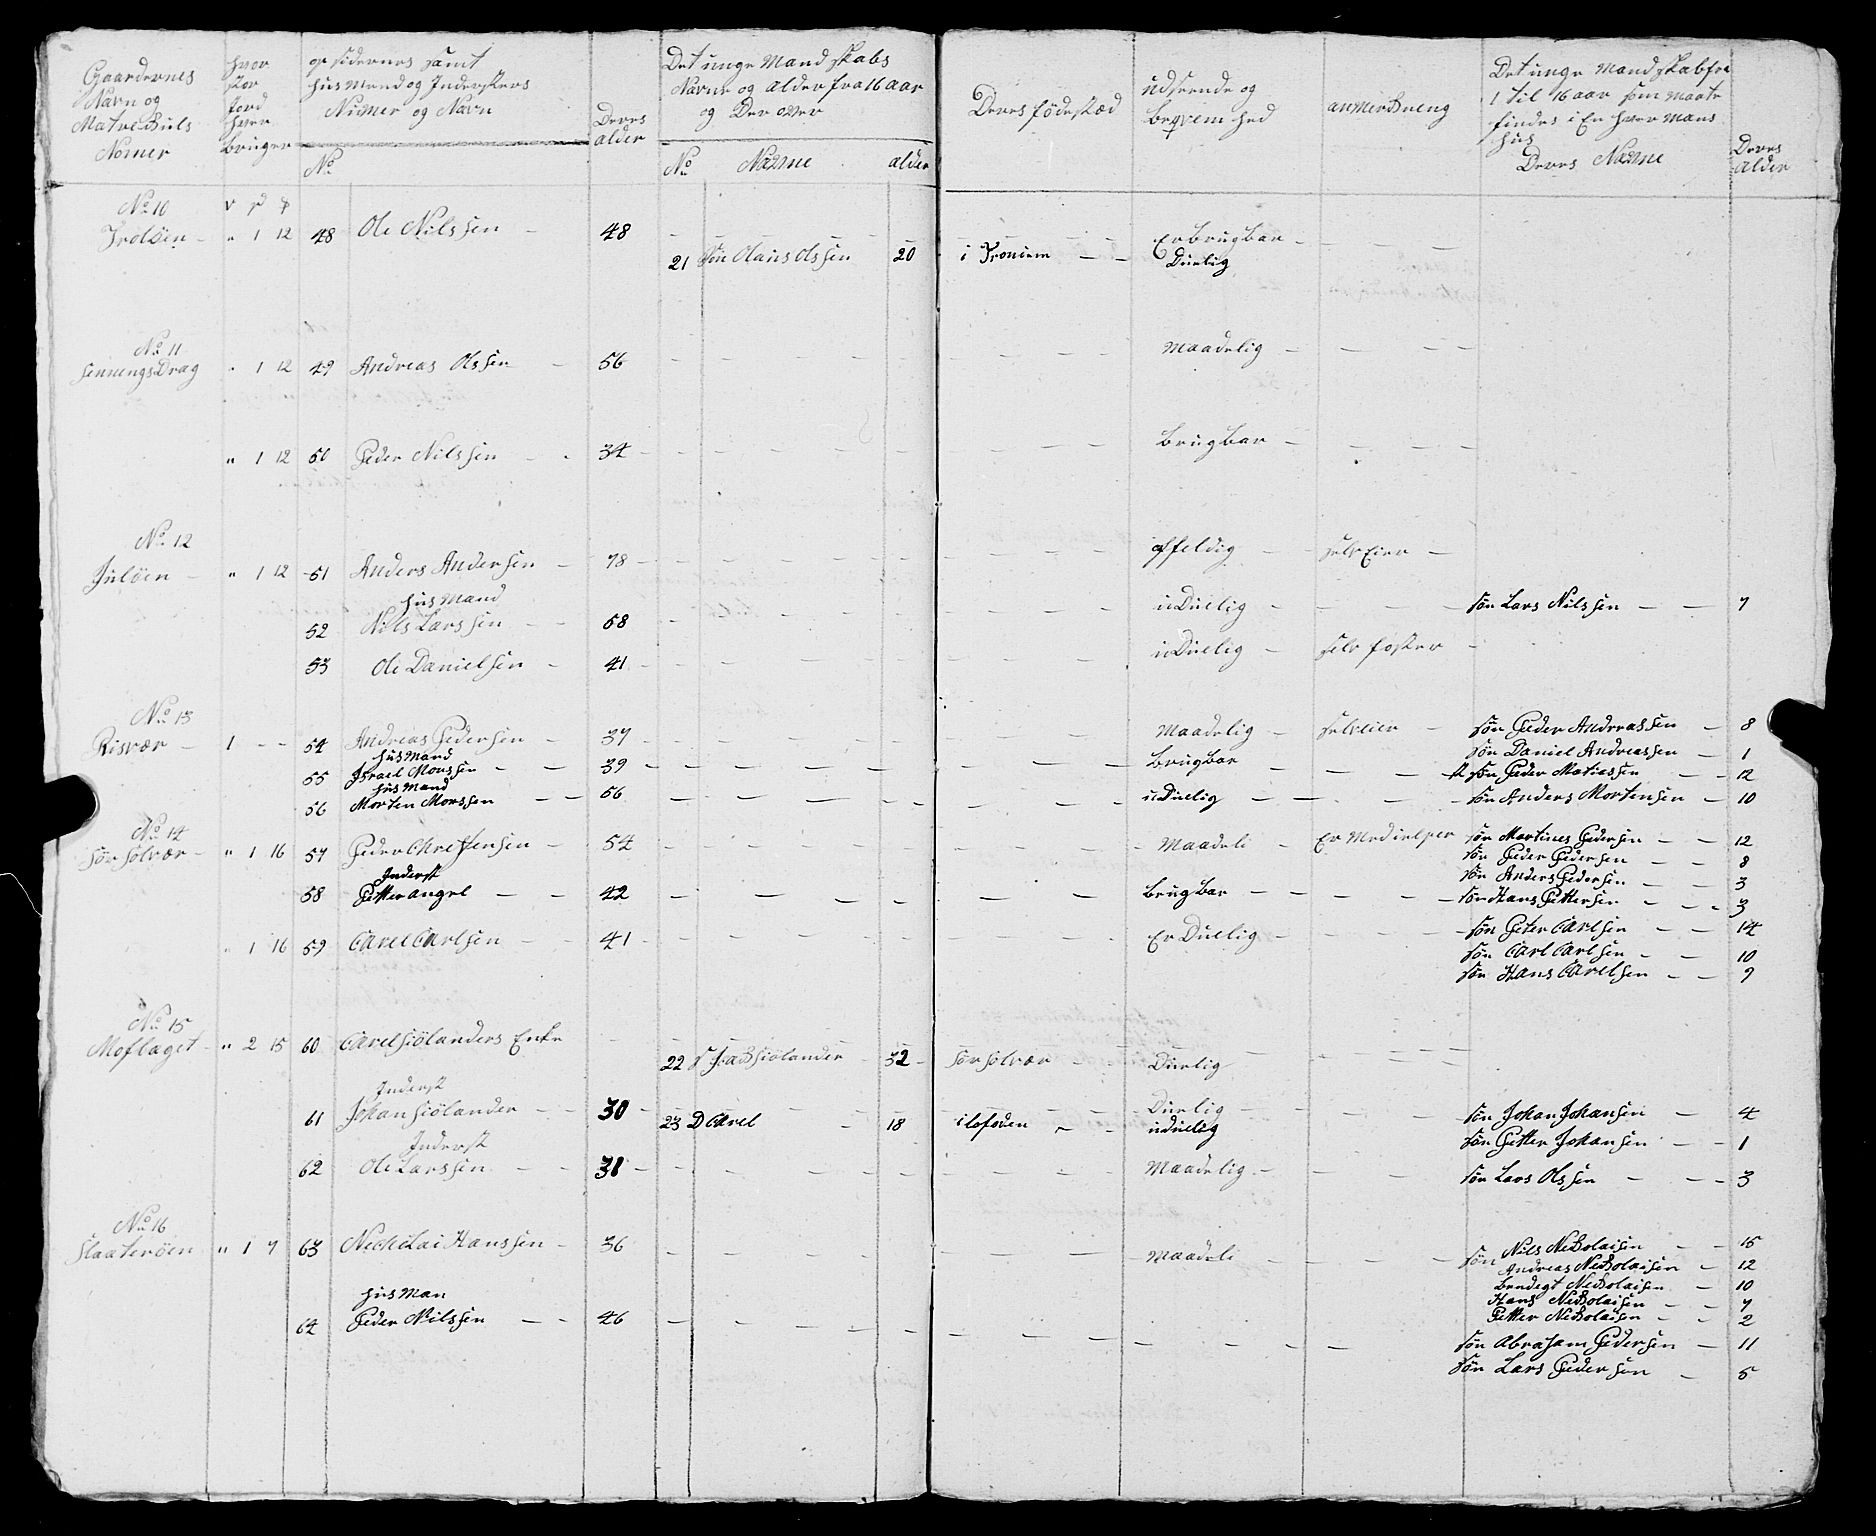 Gaardernes Navn og Matrikuls Nomer
hvor stor Jord hver bruger
opsidernes samt husmænd og Indersters Numer og Navn
No
Deres alder
Det unge Mandskabs Navne og alder fra 16 aar og Der over
No Navne alder
Deres fødestæd
udseende og beqvemhed
anmerkneng
Det unge Mandskab fra 1 til 16 aar som maate findes i En hver Mans hus
Deres Navne
Deres Alder
No 10
v p ℔
" 1 12 48 Ole Nilssen - 48
21 Søn Olaus Olssen 20 i Troniem - - Er brugbar - Duelig
No 11
" 1 12 49 Andreas Olssen - 56 Maadelig
" 1 12 50 Peder Nilssen - 34 brugbar
No 12
Juløen - " 1 12 51 Anders Andersen - 78 affeldig - selv Eier -
hus Mand
52 Nils Larssen - 58 uDuelig - søn Lars Nilssen - - 7
53 Ole Danielsen - 41 uDuelig - selv foster -
No 13
Risvær - 1 - - 54 Andreas Pedersen - 37 Maadelig - selveier - søn Peder Andreassen - 8
hus Mand
søn Daniel Andreassen - 1
55 Israel Monssen - - 39 brugbar søn Peder Matiassen 12
hus Mand
56 Morten Monssen - - 56 uDuelig søn Anders Mortensen - 10
No 14
Sør Solvær - " 1 16 57 Peder Chrestensen - 54 Maadeli - Er Medielper søn Martines Pedersen - - 12
søn Peder Pedersen - - 8
Inderst
søn Anders Pedersen - - 3
58 Petter angel - - 42 brugbar - - søn Hans Pettersen - - - 3
" 1 16 59 Carel Carlsen - - 41 Er Duelig - søn Peter Carlsen - - 14
søn Carl Carlsen - - 10
søn Hans Carelsen - - 9
No 15
Moflaget - " 2 15 60 Carel Siølanders Enke
22 Siølander 32 - Sør Solvær - - Duelig
Inderst
61 Johan Siølander - - 30 Duelig søn Johan Johansen - 4
23 D Carel - 18 i lofoden - - uduelig
Inderst
søn Petter Johansen - - 1
62 Ole Larssen - - 31 Maadelig - søn Lars Olssen - - - 3
No 16
Slaaterøen " 1 7 63 Nechelai Hanssen - 36 Maadeli søn Nils Nekolaisen - - 15
Andreas Nekolaisen - 12
bendegt Nekolaisen - 10
Hans Nekolaisen - - 7
hus Man
Petter Nekolaisen - - 2
64 Peder Nilssen - - 46 søn Abraham Pedersen - 11
søn Lars Pedersen - 5